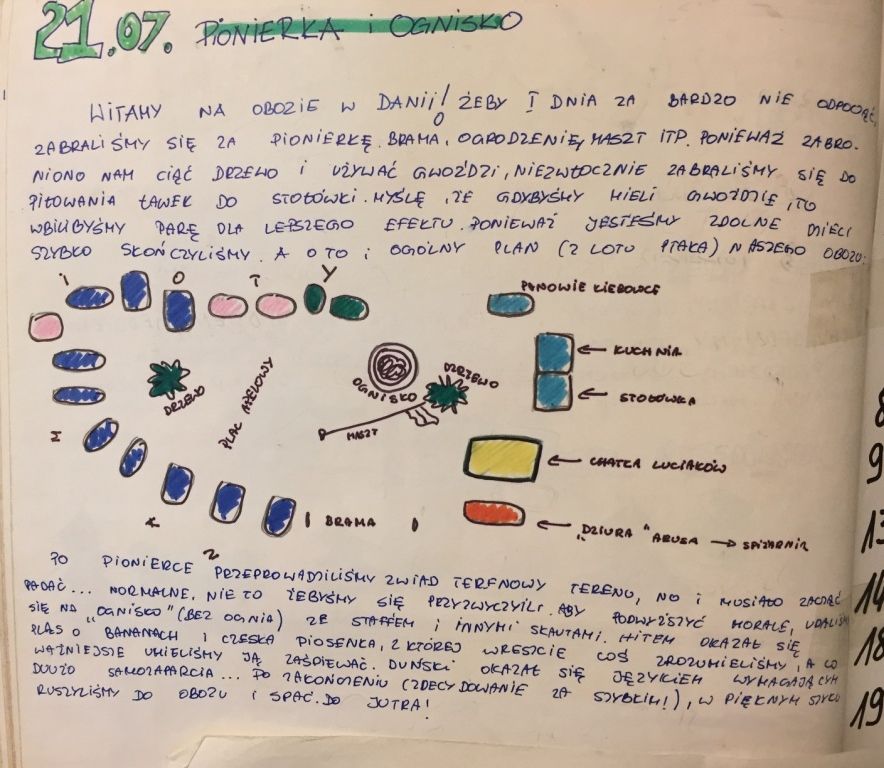 21.07. PIONIERKA i OGNISKO
WITAMY NA OBOZIE W DANII! ŻEBY I DNIA ZA BARDZO NIE ODPOCZĄĆ,
ZABRALIŚMY SIĘ ZA PIONIERKĘ. BRAMA, OGRODZENIE, MASZT ITP. PONIEWAŻ ZABRO-
NIONO NAM CIĄĆ DRZEWO I UŻYWAĆ GWOŹDZI, NIEZWŁOCZNIE ZABRALIŚMY SIĘ DO
PIŁOWANIA ŁAWEK DO STOŁÓWKI. MYŚLĘ, ŻE GDYBYŚMY MIELI GWOŹDZIE, TO
WBILIBYŚMY PARĘ DLA LEPSZEGO EFEKTU. PONIEWAŻ JESTEŚMY ZDOLNE DZIECI
SZYBKO SKOŃCZYLIŚMY. A O TO I OGÓLNY PLAN (Z LOTU PTAKA) NASZEGO OBOZU:
I O T Y
PANOWIE KIEROWCE
KUCHNIA
STOŁÓWKA
DRZEWO
PLAC APELOWY
OGNISKO
DRZEWO
MASZT
CHATKA LUCIAKÓW
BRAMA
"DZIURA" ABUSA → SPIŻARNIA
PO PIONIERCE PRZEPROWADZILIŚMY ZWIAD TERENOWY TERENU, NO I MUSIAŁO ZACZĄĆ
PADAĆ... NORMALNE, NIE TO ŻEBYŚMY SIĘ PRZYZWYCZILI. ABY PODWYŻSZYĆ MORALE, UDALIŚMY
SIĘ NA "OGNISKO" (BEZ OGNIA) ZE STAFFEM I INNYMI SKAUTAMI. HITEM OKAZAŁ SIĘ
PLĄS O BANANACH I CZESKA PIOSENKA, Z KTÓREJ WRESZCIE COŚ ZROZUMIELIŚMY, A CO
WAŻNIEJSZE UMIELIŚMY JĄ ZAŚPIEWAĆ. DUŃSKI OKAZAŁ SIĘ JĘZYKIEM WYMAGAJĄCYM
DUŻO SAMOZAPARCIA... PO ZAKOŃCZENIU (ZDECYDOWANIE ZA SZYBKIM!), W PIĘKNYM SZYKU
RUSZYLIŚMY DO OBOZU I SPAĆ. DO JUTRA!
9
13
14
18
19